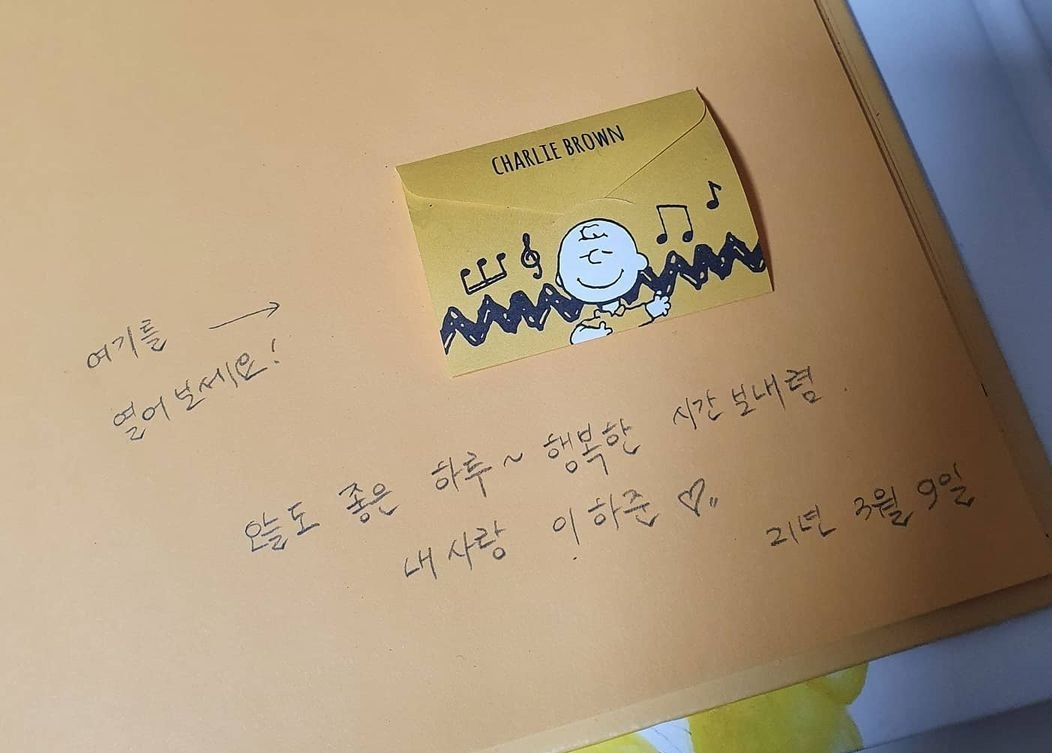 CHARLIE BROWN
여기를 →
열어보세요!
오늘도 좋은 하루~ 행복한 시간보내렴.
내사랑 이하준♡〃
21년 3월 9일